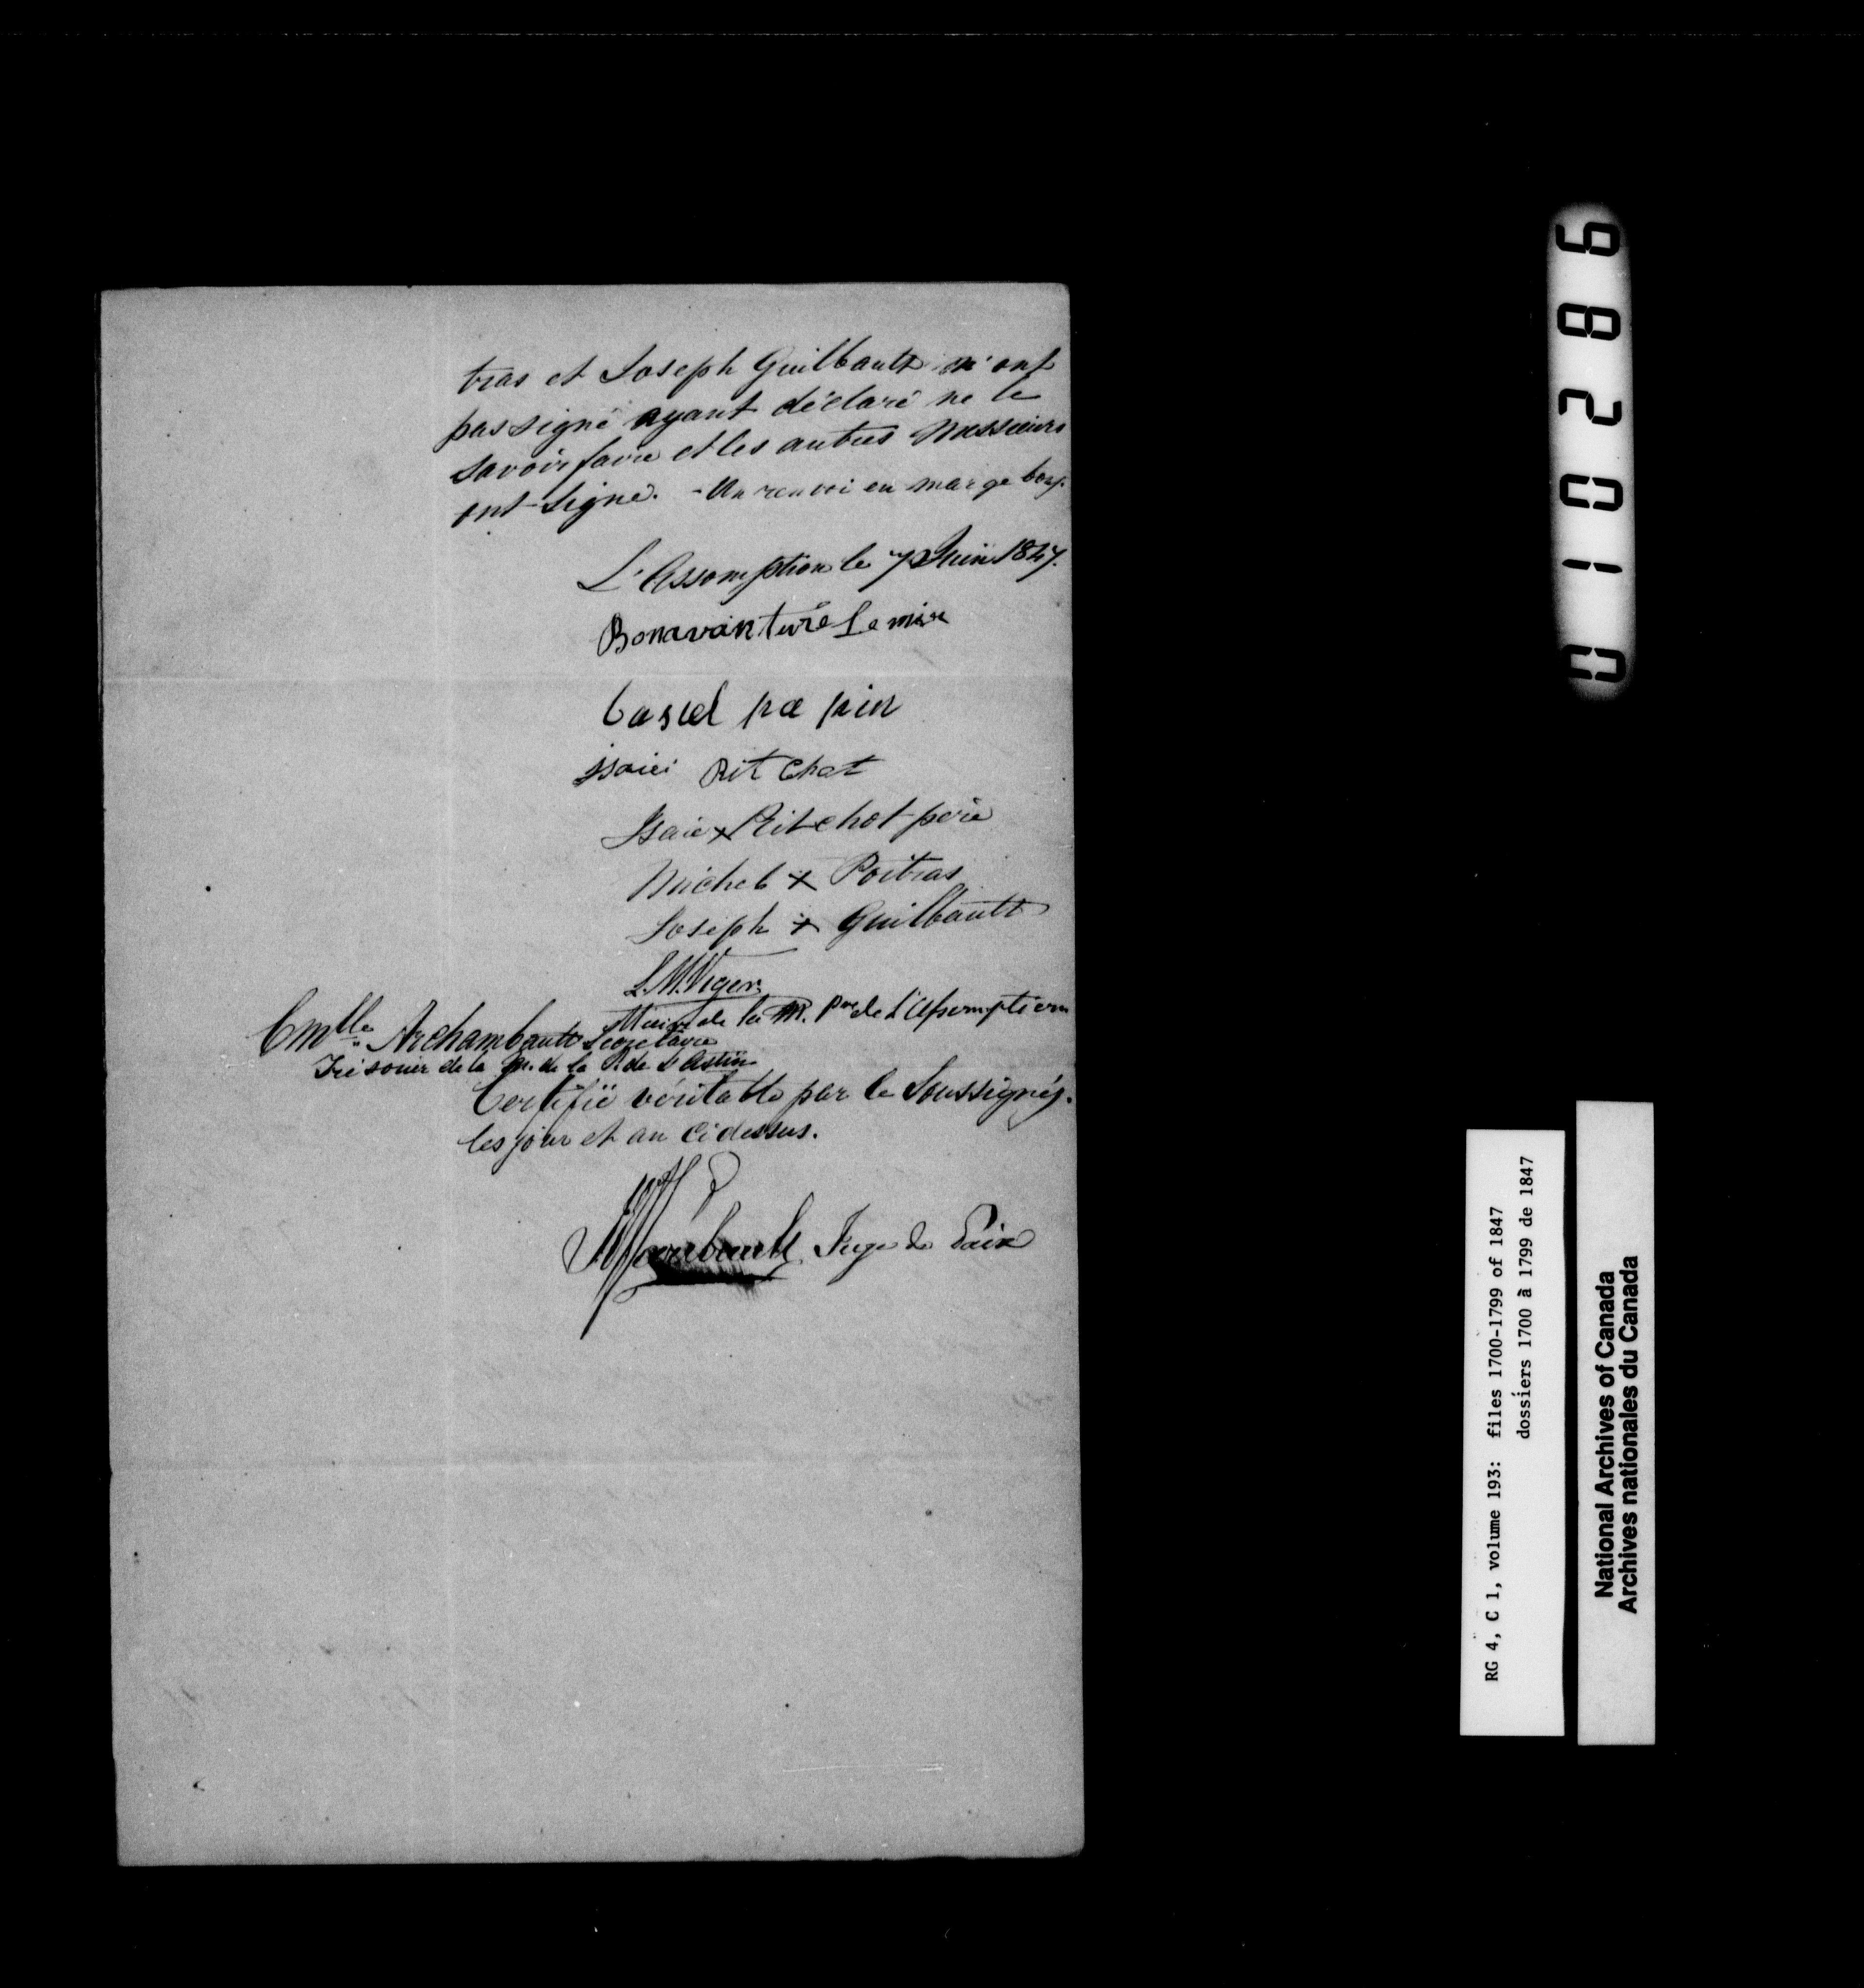 tras et Joseph Guilbault n'ont
pas signé ayant déclaré ne le
savoir faire et les autres Messieurs
ont signé. - Un renvoi en marge bon.
L'Assomption le 7 Juin 1847.
Bonavanture Lemire
pa pin
Ritchot
Isaie x Ritchot père
Michel x Poitras
Joseph x Guilbault
L. M. Viger
Maire de la M. Pse de L'Assomption
Archambault Secretaire
Trésorier de la M. de la P. de
Certifié véritable par le Soussigné.
les jour et an ci dessus.
Juge de Paix
010286
RG 4, C 1, volume 193: files 1700-1799 of 1847
dossiers 1700 à 1799 de 1847
National Archives of Canada
Archives nationales du Canada